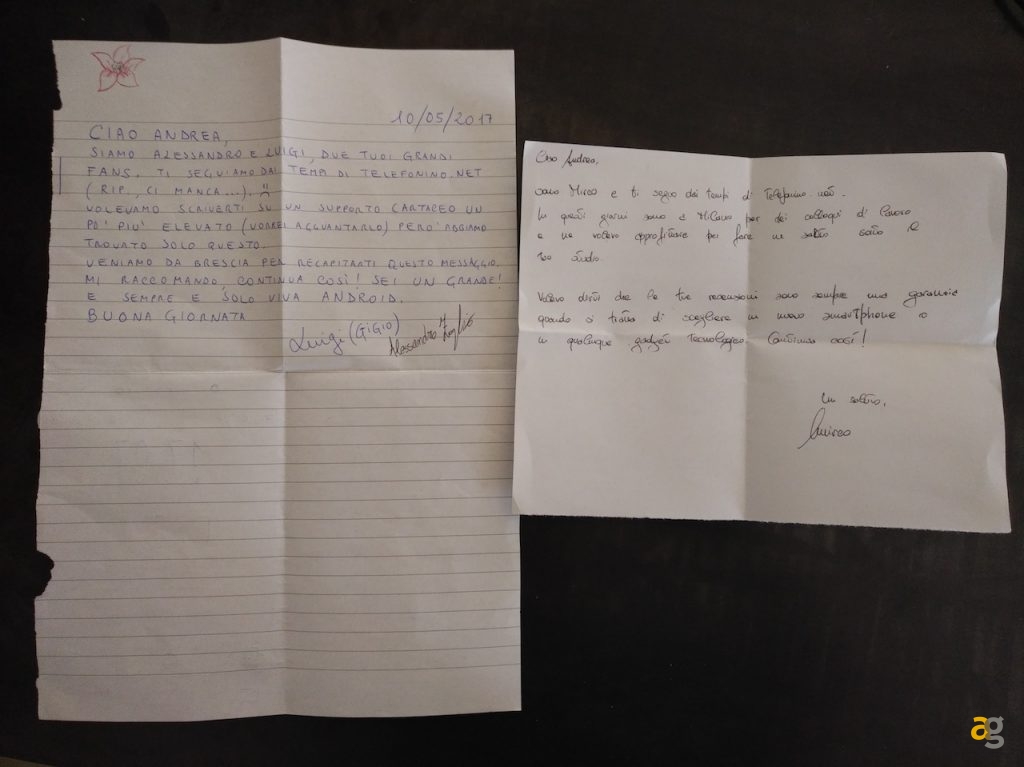 10/05/2017
CIAO ANDREA,
SIAMO ALESSANDRO E LUIGI, DUE TUOI GRANDI
FANS. TI SEGUIAMO DAI TEMPI DI TELEFONINO.NET
(RIP, CI MANCA...).
VOLEVAMO SCRIVERTI SU UN SUPPORTO CARTACEO UN
PO' PIU' ELEVATO (VORREI AGGUANTARLO) PERO' ABBIAMO
TROVATO SOLO QUESTO.
VENIAMO DA BRESCIA PER RECAPITARTI QUESTO MESSAGGIO.
MI RACCOMANDO, CONTINUA COSÌ! SEI UN GRANDE!
E SEMPRE E SOLO VIVA ANDROID.
BUONA GIORNATA
Luigi (GIGIO) Alessandro
Ciao Andrea,
sono Mirco e ti seguo dai tempi di Telefonino.net.
In questi giorni sono a Milano per dei colloqui di lavoro
e ne volevo approfittare per fare un salto sotto il
tuo studio.
Volevo dirti che le tue recensioni sono sempre una garanzia
quando si tratta di scegliere un nuovo smartphone o
un qualunque gadget tecnologico. Continua così!
Un saluto,
Mirco
ag